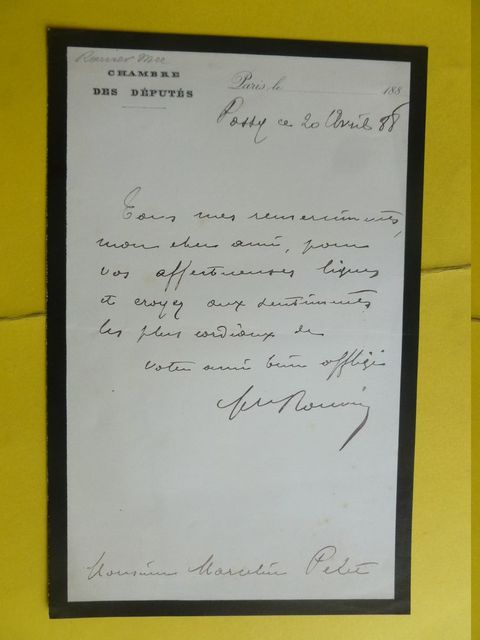 Rouvier Mce
CHAMBRE
DES DÉPUTÉS
Paris, le 188
Passy ce 20 Avril 88
Tous mes remerciments,
mon cher ami, pour
vos affectueuses lignes
et croyez aux sentiments
les plus cordiaux de
votre ami bien affligé
Rouvier
Monsieur Marcelin Pellet